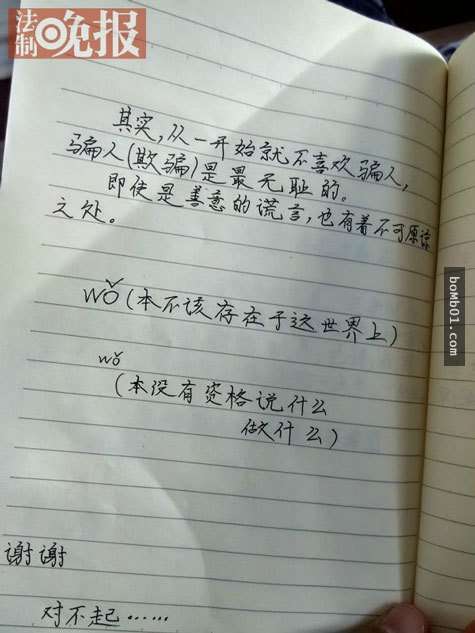 法制晚报
其实,从一开始就不喜欢骗人,
骗人(欺骗)是最无耻的。
即使是善意的谎言,也有着不可原谅
之处。
wǒ(本不该存在于这世界上)
wǒ
(本没有资格说什么
做什么)
谢谢
对不起……
boMb01.com